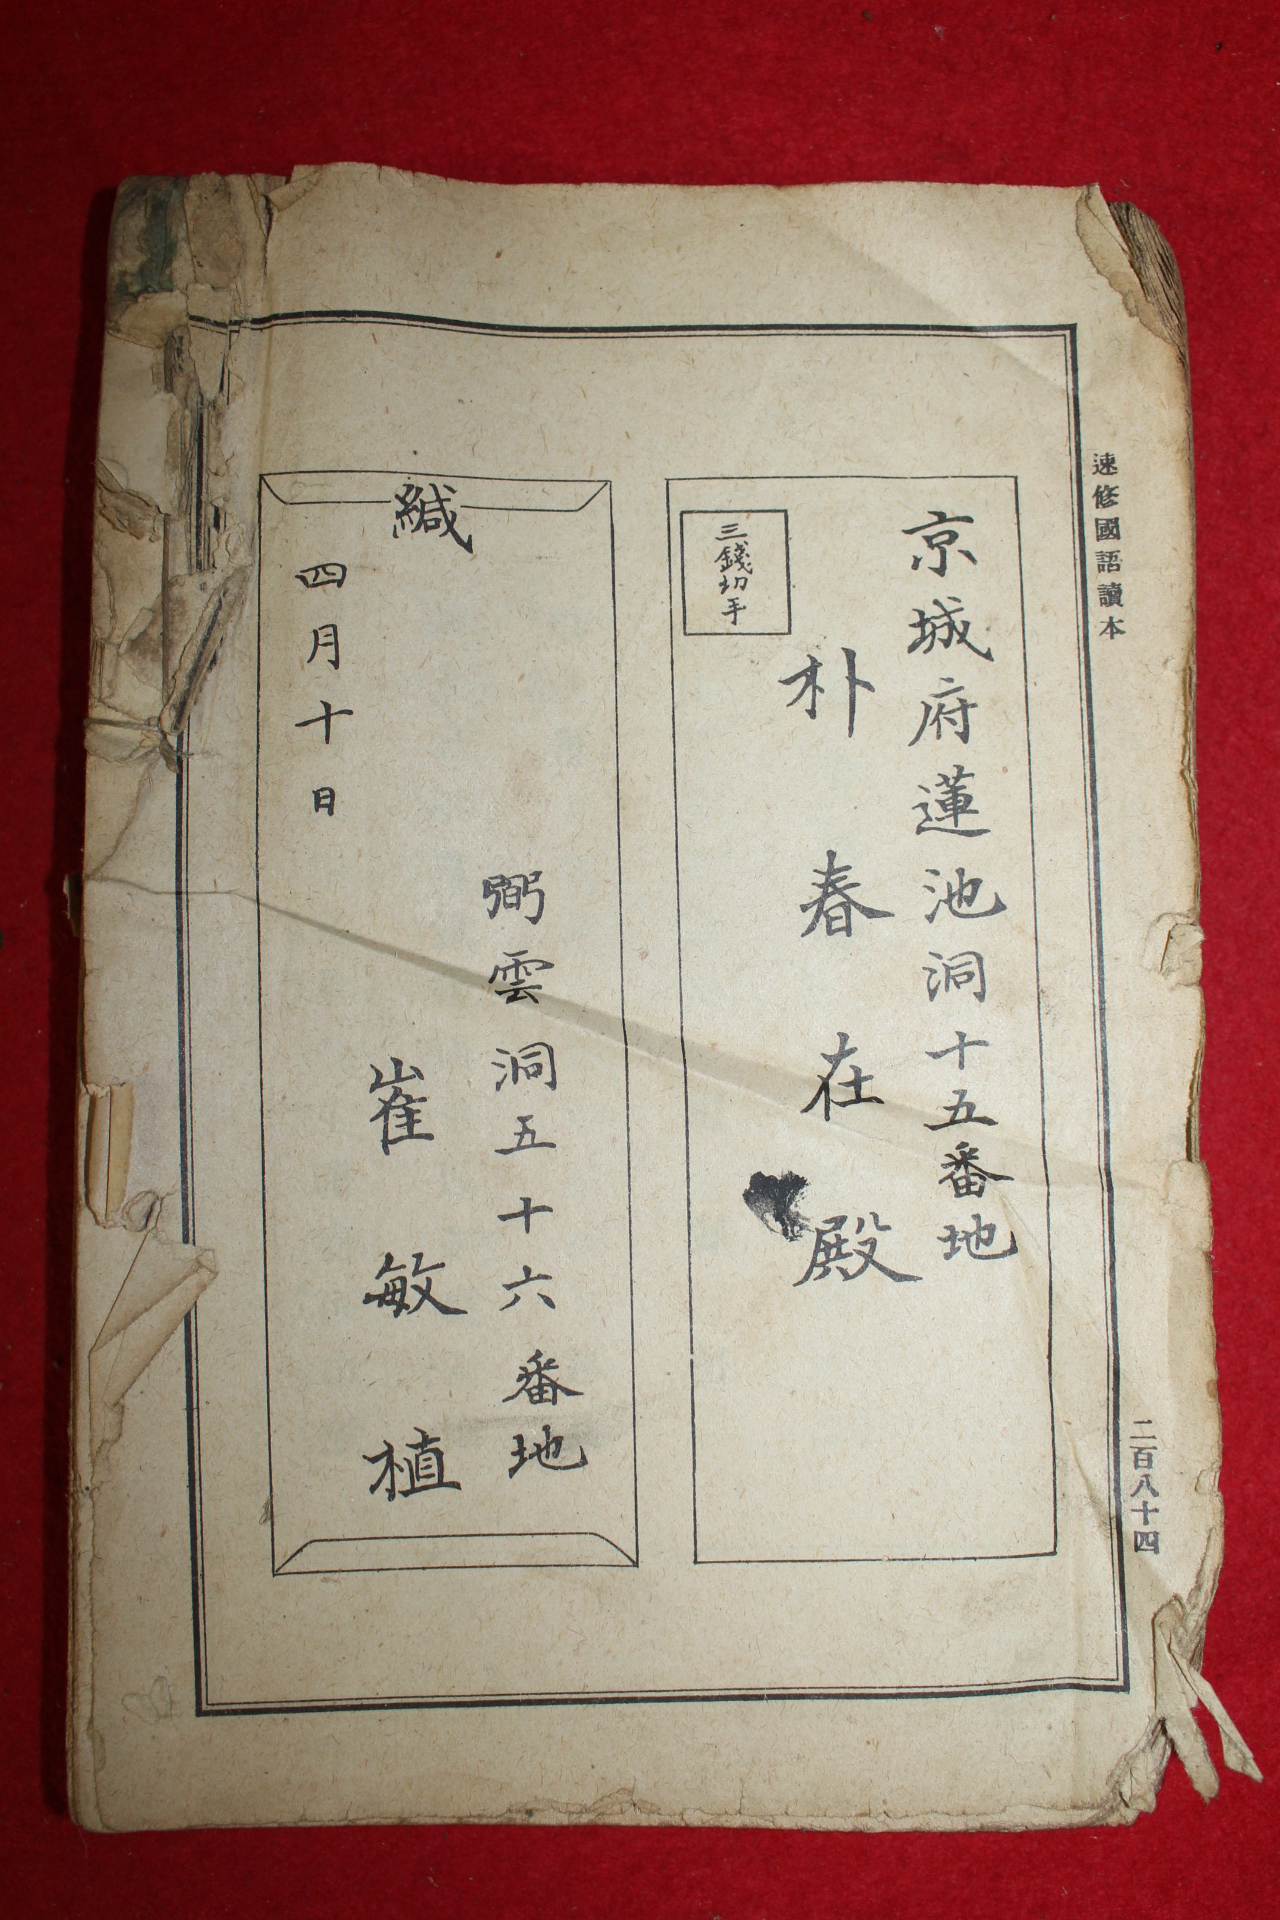 速修國語讀本
京城府蓮池洞十五番地
朴春在殿
三錢切手
弼雲洞五十六番地
崔敏植
緘
四月十日
二百八十四